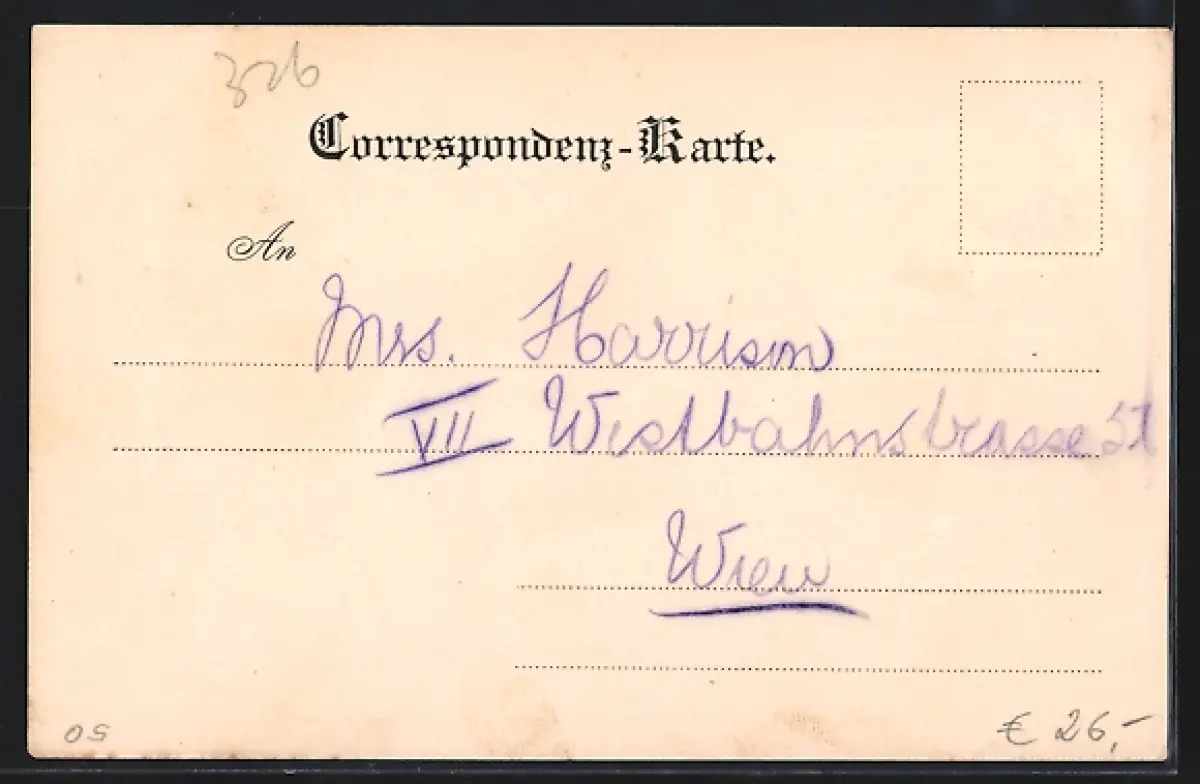 326
Correspondenz-Karte.
An
Mrs. Harrison
VII Westbahnstrasse
Wien
50
€ 26,-